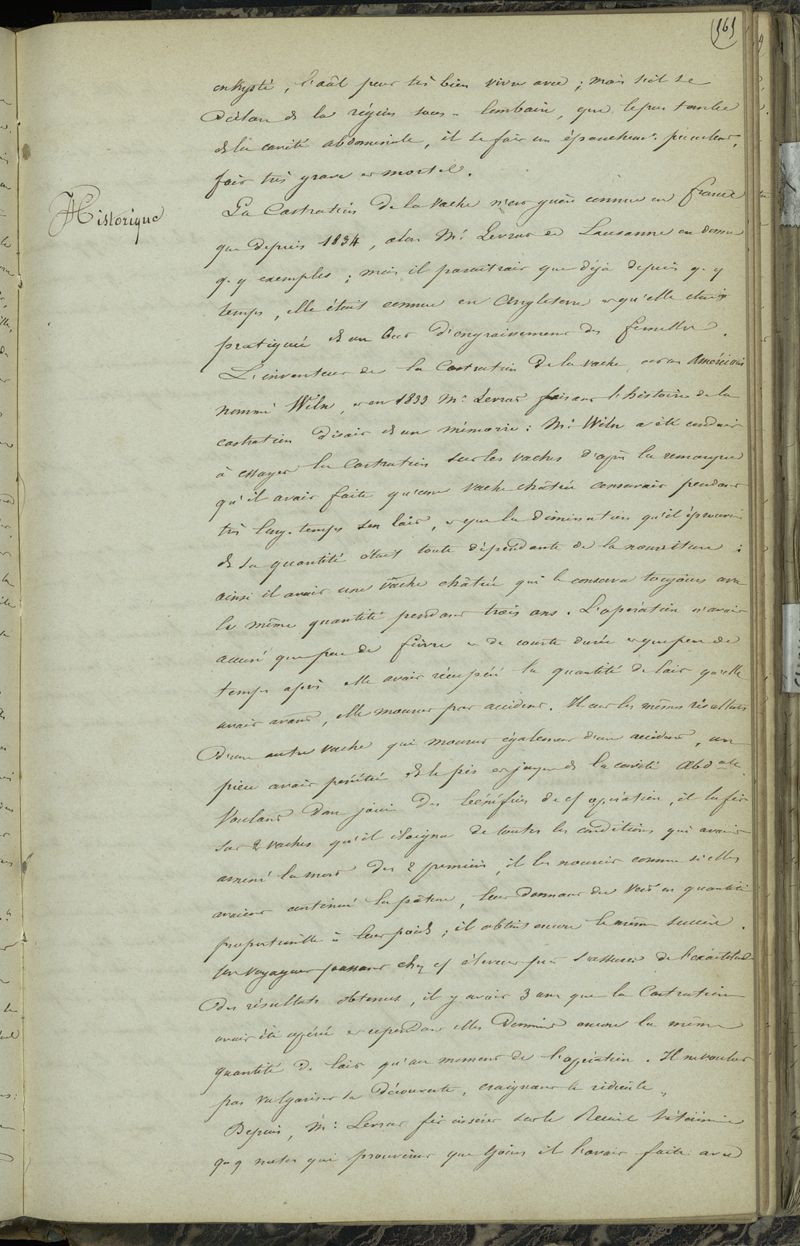 161
enkysté, l'aôl peut très bien vivre avec ; mais s'il se
déclare ds la région sous-lombaire, que le pus tombe
ds la cavité abdominale, il se fait un épanchemt
fois très grave et mortel.
Historique
La Castration de la vache n'est guère connue en France
que depuis 1834, alors Mr Levrat de Lausanne en donna
q.q exemples ; mais il paraîtrait que déjà depuis q.q
temps, elle était connue en Angleterre et qu'elle était
pratiquée ds un but d'engraissement des femelles.
L'inventeur de la Castration de la vache, est un Américain
nommé Wiln, et en 1833 Mr Levrat faisant l'histoire de la
castration disait ds un mémoire : Mr Wiln a été conduit
à essayer la Castration sur les vaches d'après la remarque
qu'il avait faite qu'une vache châtrée conservait pendant
très long-temps son lait, et que la diminution qu'il éprouvait
ds sa quantité était toute dépendante de la nourriture :
ainsi il avait une vache châtrée qui le conserva toujours avec
la même quantité pendant trois ans. L'opération n'avait
accusé que peu de fièvre et de courte durée et que peu de
temps après elle avait récupéré la quantité de lait qu'elle
avait avant, elle mourut par accident. Il eut les mêmes résultats
d'une autre vache qui mourut également d'un accident, un
pieu avait pénétré ds le pis et jusque ds la cavité Abdale.
Voulant donc jouir des bénéfices de cf opération, il la fit
sur 2 vaches qu'il éloigna de toutes les conditions qui avaient
amené la mort des 2 premières, il les nourrit comme si elles
avaient continué la pâture, leur donnant du vert en quantité
proportionnelle à leur poids ; il obtint encore le même succès.
Un voyageur passant chez cf éleveur put s'assurer de l'exactitude
des résultats obtenus, il y avait 3 ans que la Castration
avait été opérée et cependant elles donnaient encore la même
quantité de lait qu'au moment de l'opération. Il ne voulut
pas vulgariser sa découverte, craignant le ridicule.
Depuis, Mr Levrat fit insérer sur le Recueil Vétérinaire
q.q notes qui prouvèrent que il l'avait faite avec